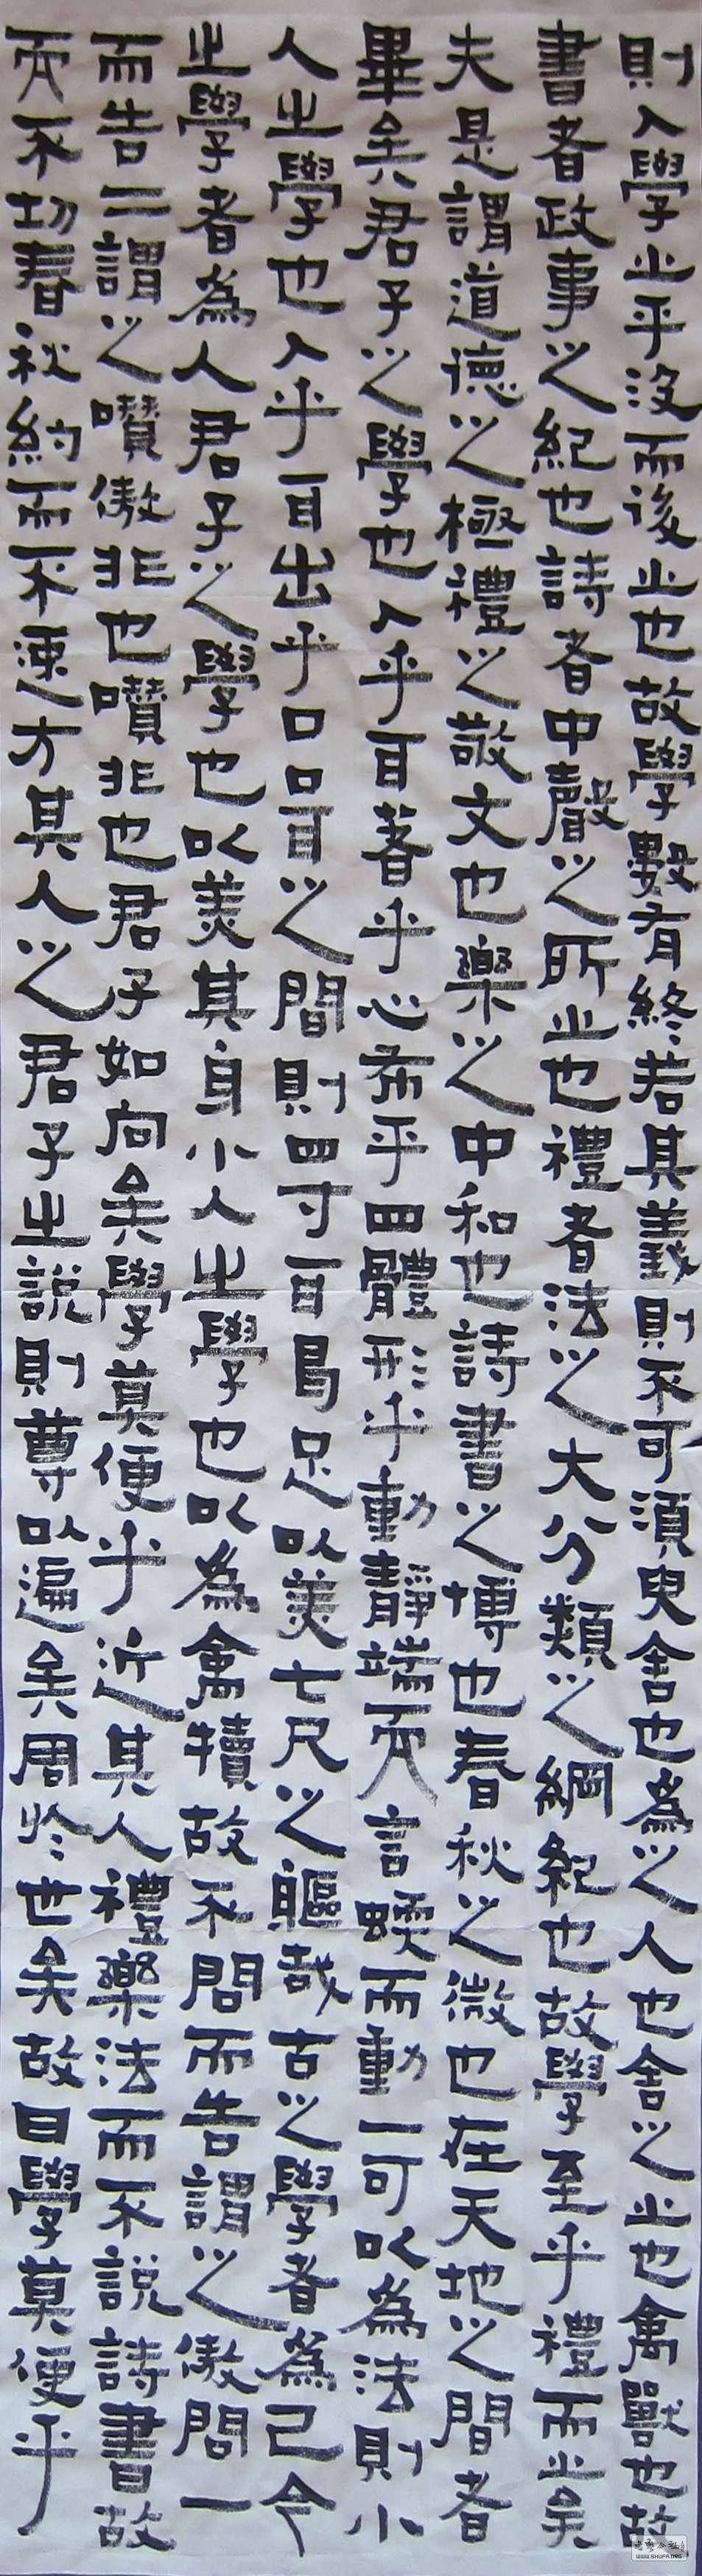 則入學止乎没而後止也故學數有終若其義則不可須臾舍也為之人也舍之止也禽獸也故
書者政事之紀也詩者中聲之所止也禮者法之大分類之綱紀也故學至乎禮而止矣
夫是謂道德之極禮之敬文也樂之中和也詩書之博也春秋之微也在天地之間者
畢矣君子之學也入乎耳著乎心布乎四體形乎動靜端而言蝡而動一可以為法則小
人之學也入乎耳出乎口口耳之間則四寸耳曷足以美七尺之軀哉古之學者為己今
之學者為人君子之學也以美其身小人之學也以為禽犢故不問而告謂之傲問一
而告二謂之囋傲非也囋非也君子如向矣學莫便乎近其人禮樂法而不説詩書故
而不切春秋約而不速方其人之君子之説則尊以遍矣周於世矣故曰學莫便乎
WWW.SHUFA.ORG